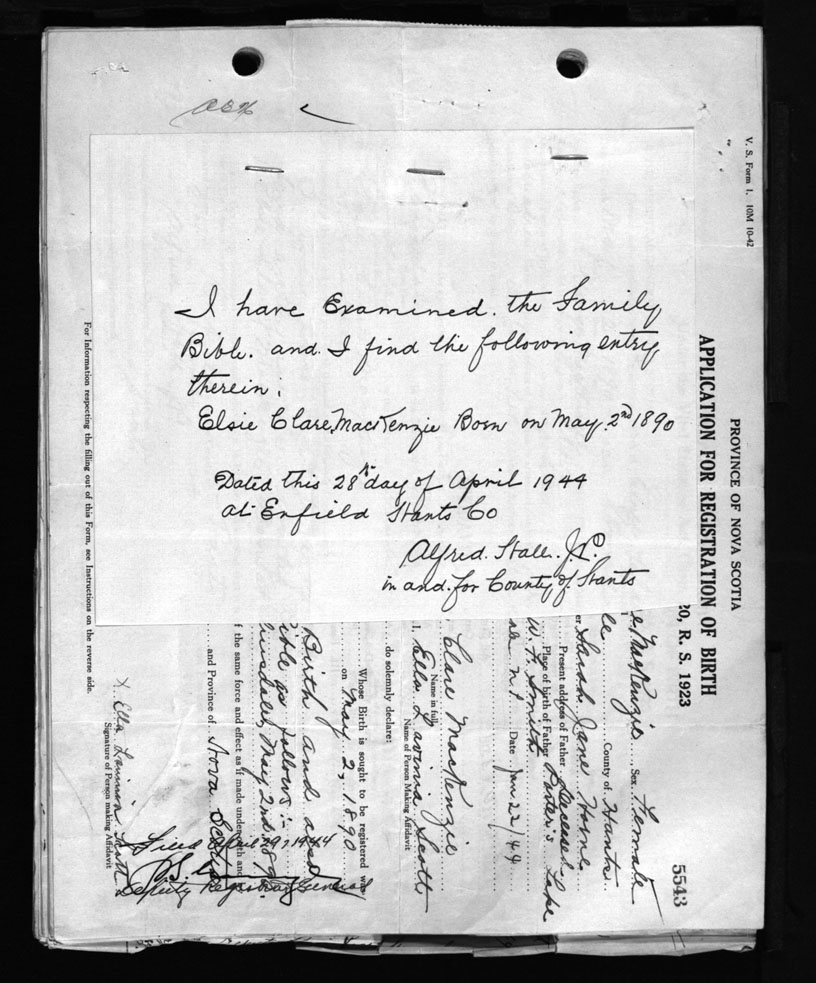 V. S. Form 1. 10M 10-42
I have Examined. the Family
Bible. and. I find the following entry
therein;
Elsie Clare, MacKenzie Born on May. 2nd 1890
Dated this 28th day of April 1944
at Enfield Hants Co
Alfred. Hall. J.P.
in and. for County of. Hants
PROVINCE OF NOVA SCOTIA
APPLICATION FOR REGISTRATION OF BIRTH
20, R. S. 1923
5543
MacKenzie Sex. Female
County of Hants
Sarah Jane Horne
Present address of Father Deceased
Place of birth of Father Porter's Lake
W. F. Smith
Date Jan 22/44
Clare MacKenzie
Name in full
I, Ella Lavinia Scott
Name of Person Making Affidavit
do solemnly declare:
Whose Birth is sought to be registered was
on May 2, 1890
Birth and
Bible as follows:-
May 2nd 1890
f the same force and effect as if made under oath and
and Province of Nova Scotia
Filed April 29, 1944
Deputy Registrar General
X Ella Lavinia Scott
Signature of Person making Affidavit
For Information respecting the filling out of this Form, see Instructions on the reverse side.